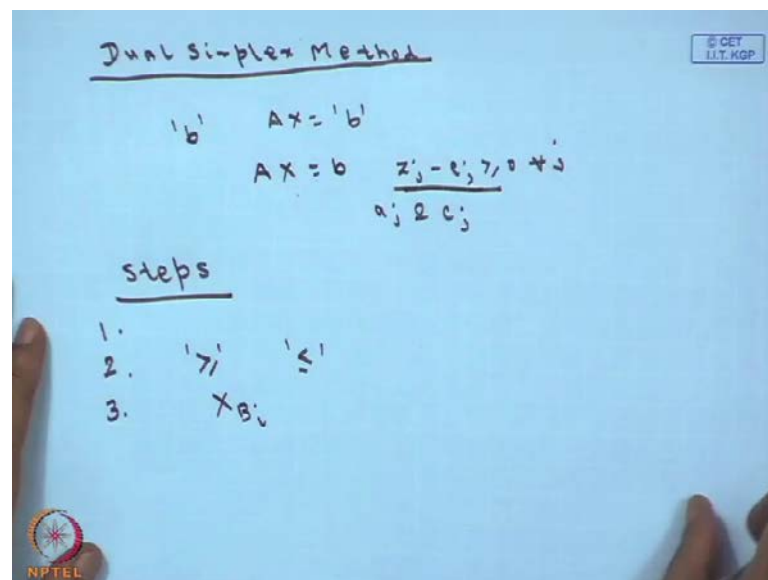 Dual Simplex Method
© CET
I.I.T. KGP
'b' Ax = 'b'
Ax = b zj - cj ≥ 0 ∀ j
aj & cj
Steps
1.
2. '≥' '≤'
3. XBi
NPTEL